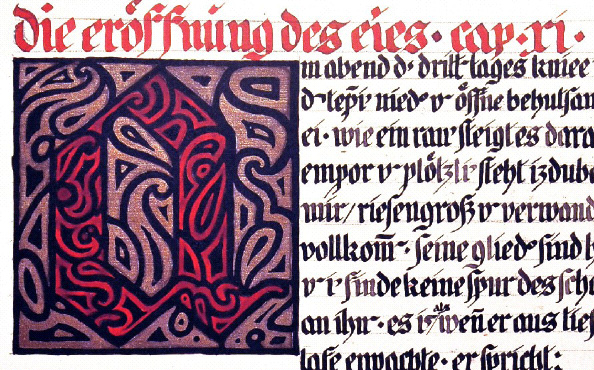 die eröffnung des eies · cap · xi ·
Am abend d· dritt tages kniee
d· nied· v· öffne behutsam
ei · wie ein rau steigt es dara
empor v· plötzli steht izduba
mir/ riesengroß v· verwand
vollkom̄ · seine glied· sind h
v· i· finde keine spur des scha
an ihr · es i· als wen̄ er aus tief
lafe erwachte · er spricht: